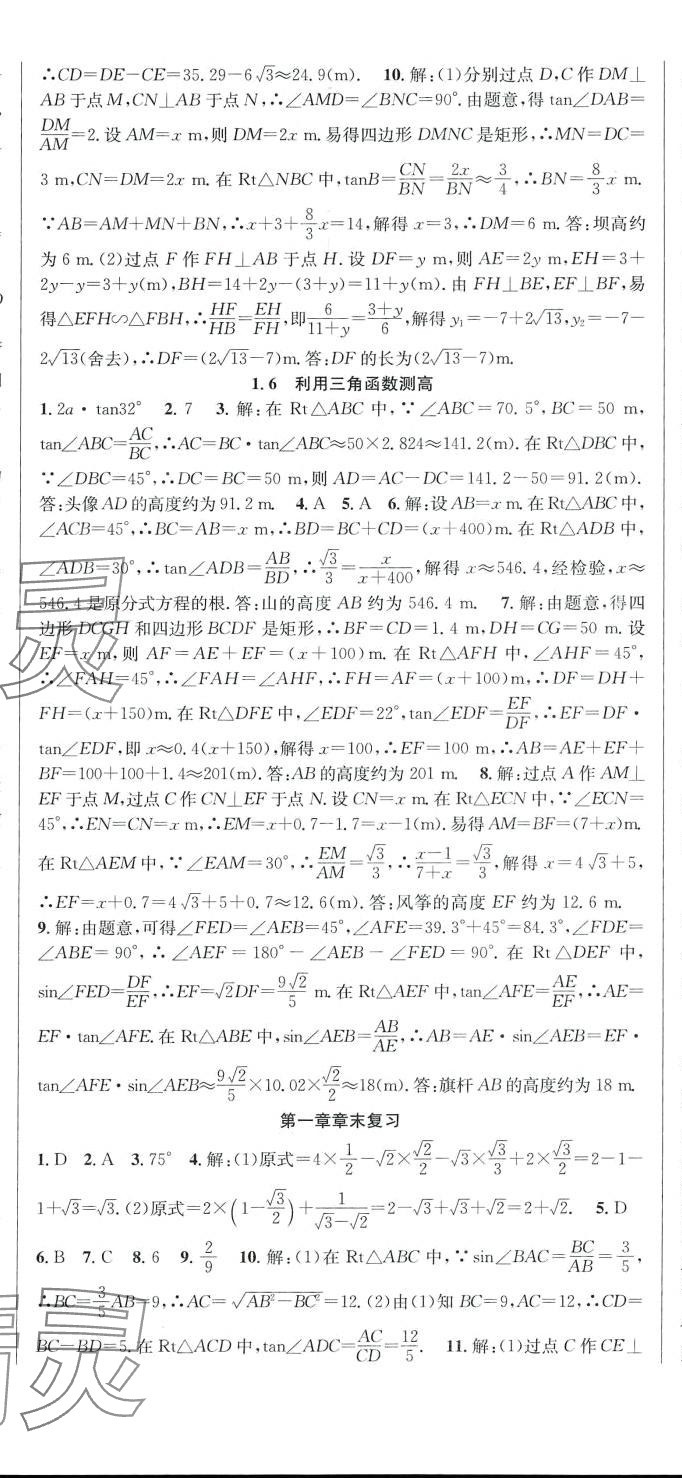 ∴CD=DE−CE=35.29−6√3≈24.9(m).  10. 解:(1)分别过点D,C作DM⊥
AB于点M,CN⊥AB于点N,∴∠AMD=∠BNC=90°.由题意,得tan∠DAB=
DM/AM=2.设AM=x m,则DM=2x m.易得四边形DMNC是矩形,∴MN=DC=
3 m,CN=DM=2x m.在Rt△NBC中,tanB=CN/BN=2x/BN≈3/4,∴BN=8/3 x m.
∵AB=AM+MN+BN,∴x+3+8/3 x=14,解得x=3,∴DM=6 m.答:坝高约
为6 m.(2)过点F作FH⊥AB于点H.设DF=y m,则AE=2y m,EH=3+
2y−y=3+y(m),BH=14+2y−(3+y)=11+y(m).由FH⊥BE,EF⊥BF,易
得△EFH∽△FBH,∴HF/HB=EH/FH,即6/(11+y)=(3+y)/6,解得y₁=−7+2√13,y₂=−7−
2√13(舍去),∴DF=(2√13−7)m.答:DF的长为(2√13−7)m.
1.6 利用三角函数测高
1. 2a·tan32°  2. 7  3. 解:在Rt△ABC中,∵∠ABC=70.5°,BC=50 m,
tan∠ABC=AC/BC,∴AC=BC·tan∠ABC≈50×2.824≈141.2(m).在Rt△DBC中,
∵∠DBC=45°,∴DC=BC=50 m,则AD=AC−DC=141.2−50=91.2(m).
答:头像AD的高度约为91.2 m.  4. A  5. A  6. 解:设AB=x m.在Rt△ABC中,
∠ACB=45°,∴BC=AB=x m,∴BD=BC+CD=(x+400)m.在Rt△ADB中,
∠ADB=30°,∴tan∠ADB=AB/BD,∴√3/3=x/(x+400),解得x≈546.4,经检验,x≈
546.4是原分式方程的根.答:山的高度AB约为546.4 m.  7. 解:由题意,得四
边形DCGH和四边形BCDF是矩形,∴BF=CD=1.4 m,DH=CG=50 m.设
EF=x m,则AF=AE+EF=(x+100)m.在Rt△AFH中,∠AHF=45°,
∴∠FAH=45°,∴∠FAH=∠AHF,∴FH=AF=(x+100)m,∴DF=DH+
FH=(x+150)m.在Rt△DFE中,∠EDF=22°,tan∠EDF=EF/DF,∴EF=DF·
tan∠EDF,即x≈0.4(x+150),解得x=100,∴EF=100 m,∴AB=AE+EF+
BF=100+100+1.4≈201(m).答:AB的高度约为201 m.  8. 解:过点A作AM⊥
EF于点M,过点C作CN⊥EF于点N.设CN=x m.在Rt△ECN中,∵∠ECN=
45°,∴EN=CN=x m,∴EM=x+0.7−1.7=x−1(m).易得AM=BF=(7+x)m.
在Rt△AEM中,∵∠EAM=30°,∴EM/AM=√3/3,∴(x−1)/(7+x)=√3/3,解得x=4√3+5,
∴EF=x+0.7=4√3+5+0.7≈12.6(m).答:风筝的高度EF约为12.6 m.
9. 解:由题意,可得∠FED=∠AEB=45°,∠AFE=39.3°+45°=84.3°,∠FDE=
∠ABE=90°,∴∠AEF=180°−∠AEB−∠FED=90°.在Rt△DEF中,
sin∠FED=DF/EF,∴EF=√2DF=9√2/5 m.在Rt△AEF中,tan∠AFE=AE/EF,∴AE=
EF·tan∠AFE.在Rt△ABE中,sin∠AEB=AB/AE,∴AB=AE·sin∠AEB=EF·
tan∠AFE·sin∠AEB≈9√2/5×10.02×√2/2≈18(m).答:旗杆AB的高度约为18 m.
第一章章末复习
1. D  2. A  3. 75°  4. 解:(1)原式=4×1/2−√2×√2/2−√3×√3/3+2×√3/2=2−1−
1+√3=√3.(2)原式=2×(1−√3/2)+1/(√3−√2)=2−√3+√3+√2=2+√2.  5. D
6. B  7. C  8. 6  9. 2/9  10. 解:(1)在Rt△ABC中,∵sin∠BAC=BC/AB=3/5,
∴BC=3/5 AB=9,∴AC=√(AB²−BC²)=12.(2)由(1)知BC=9,AC=12,∴CD=
BC−BD=5.在Rt△ACD中,tan∠ADC=AC/CD=12/5.  11. 解:(1)过点C作CE⊥